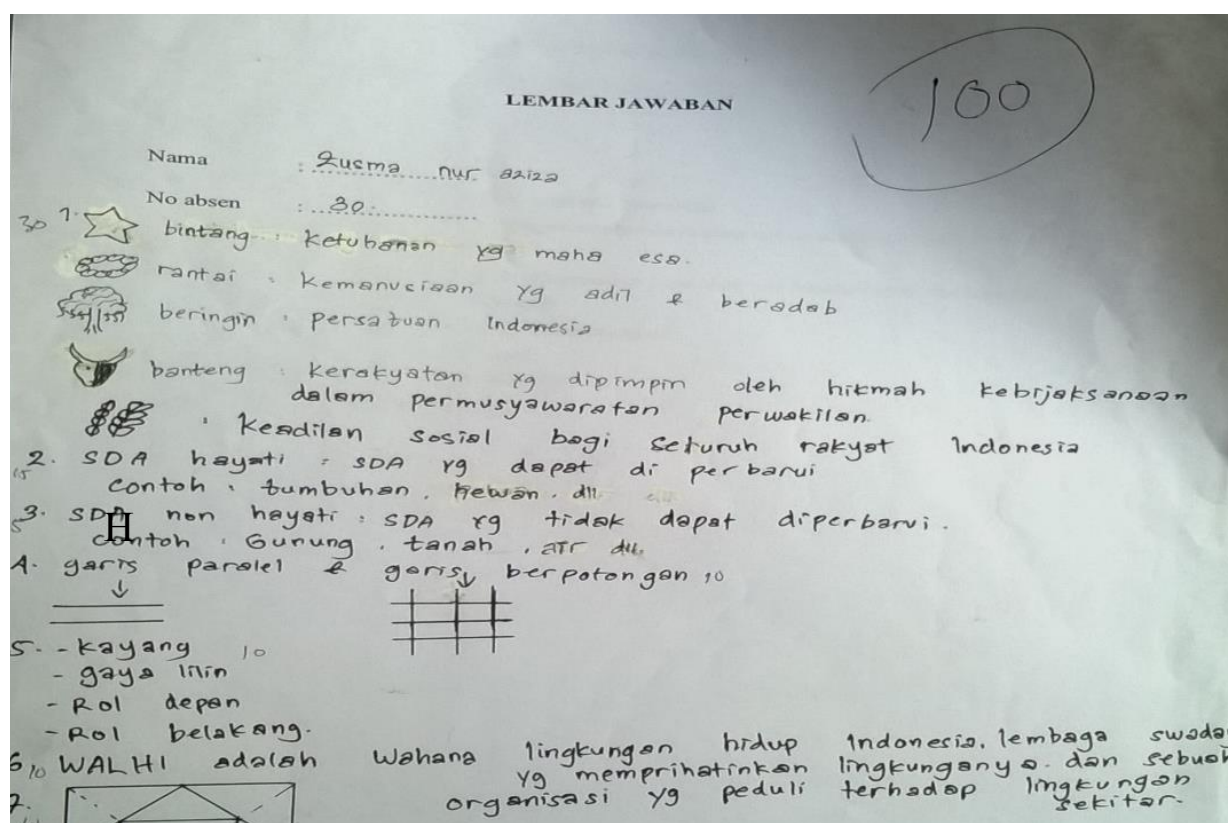 LEMBAR JAWABAN
100
Nama : Zusma nur aziza
No absen : 30
30 1. bintang : Ketuhanan yg maha esa.
rantai : Kemanusiaan yg adil & beradab
beringin : persatuan Indonesia
banteng : kerakyatan yg dipimpin oleh hikmah kebijaksanaan
dalam permusyawaratan perwakilan.
: Keadilan sosial bagi seluruh rakyat Indonesia
2. SDA hayati : SDA yg dapat di perbarui
15
contoh : tumbuhan, hewan, dll.
3. SDA non hayati : SDA yg tidak dapat diperbarui.
5
H
Contoh : Gunung, tanah, air dll.
4. garis paralel & garis berpotongan 10
5. - kayang 10
- gaya lilin
- Rol depan
- Rol belakang.
6. 10 WALHI adalah Wahana lingkungan hidup Indonesia, lembaga swada
yg memprihatinkan lingkunganya. dan sebuah
organisasi yg peduli terhadap lingkungan
sekitar.
7.